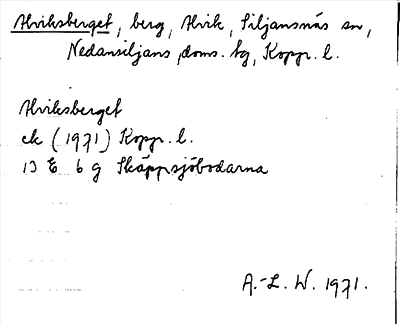 Alviksberget, berg, Alvik, Siljansnäs sn,
Nedansiljans doms. tg, Kopp. l.
Alviksberget
ek (1971) Kopp. l.
13 E 6 g Skäppsjöbodarna
A.-L. W. 1971.